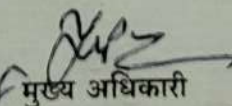 मुख्य अधिकारी